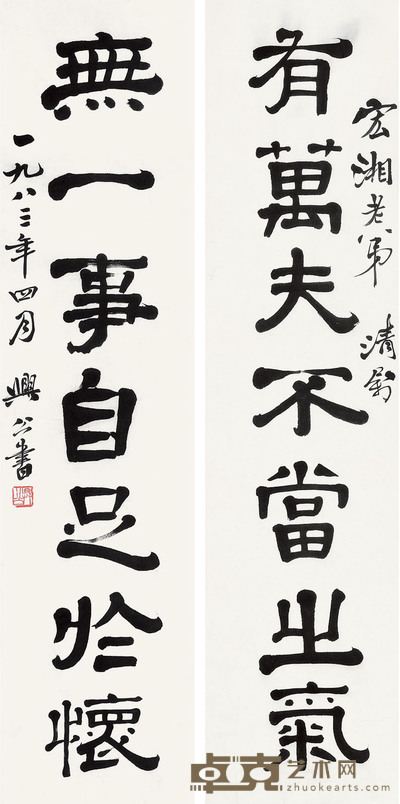 宏湘老弟 清翫
有萬夫不當之氣
無一事自足於懷
一九八三年四月 興公書
卓克艺术网
zhuokearts.com